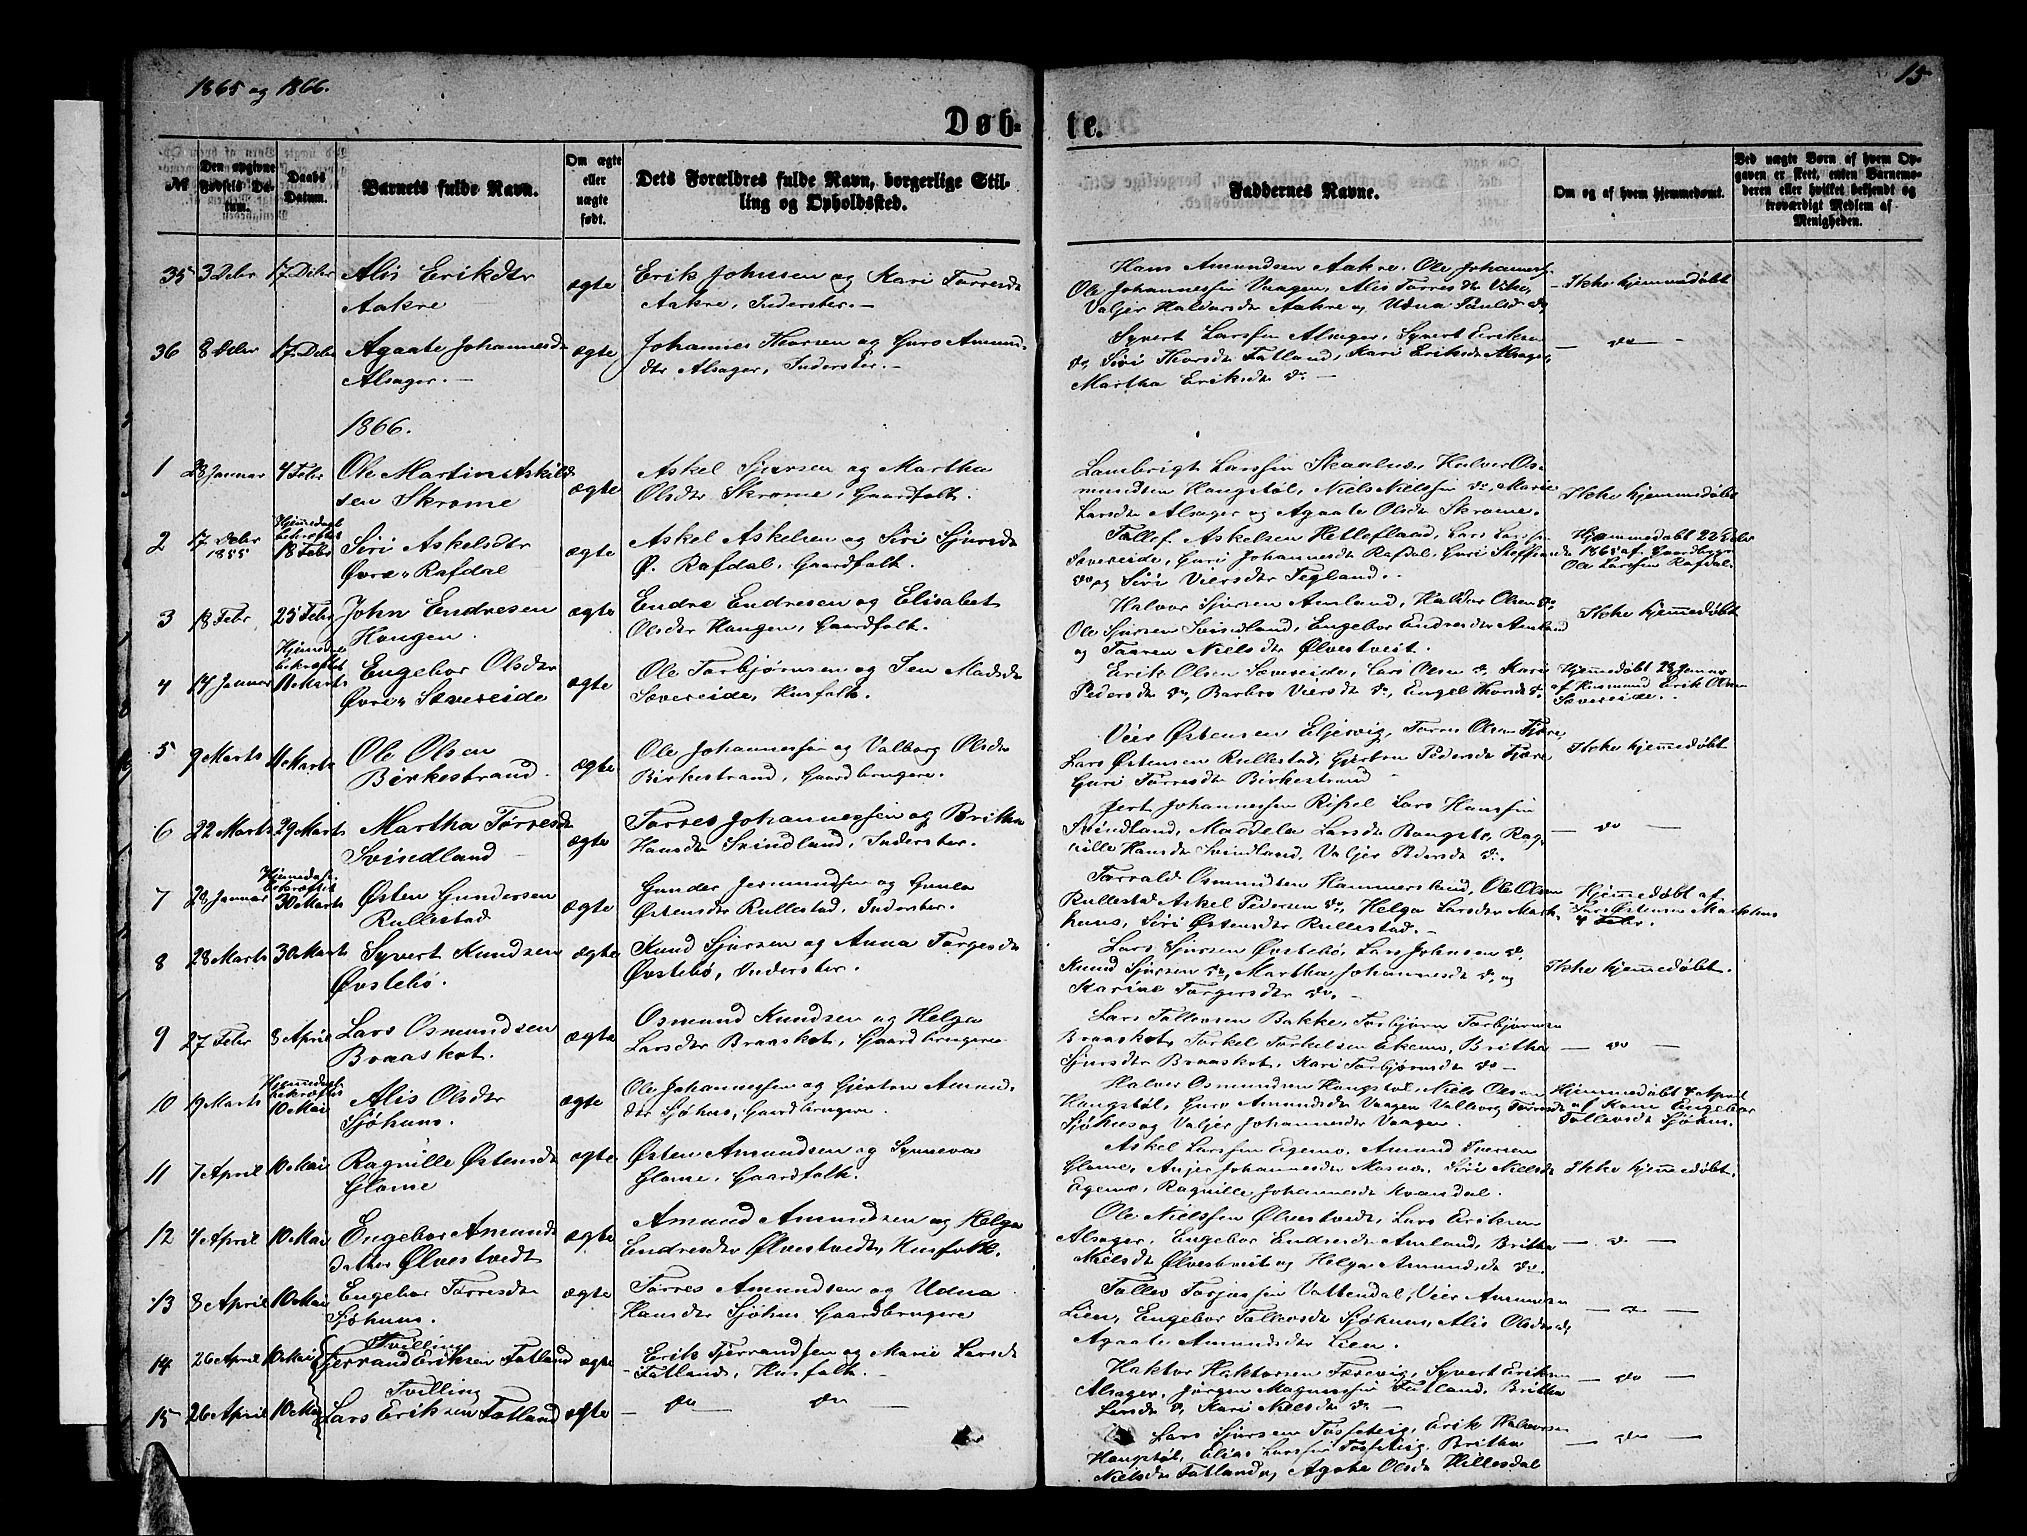 1865 og 1866.
15
Døb-
te.
№
Den opgivne Fødsels Datum.
Daabs Datum.
Barnets fulde Navn.
Om ægte eller uægte født.
Dets Forældres fulde Navn, borgerlige Stilling og Opholdssted.
Faddernes Navne.
Om og af hvem hjemmedøbt.
Ved uægte Børn af hvem Opgaven er skeet, enten Barnemoderen eller hvilket bekjendt og troværdigt Medlem af Menigheden.
35 3 Debr 17 Debr Alis Eriksdtr
Aakre
ægte
Erik Johnsen og Kari Torresdt
Aakre, Inderster.-
Hans Amundsen Aakre, Ole Johannes
Ole Johannessen Vaagen, Alis Torresdtr
Valjer Haldorsdtr Aakre og Udna
Ikke hjemmedøbt
36 8 Debr 17 Debr Agaate Johannesdt
Alsager.-
ægte
Johannes Thorsen og Guro Amunds
dtr Alsager, Inderster.-
Syvert Larssen Alsager, Syvert Eriksen
do, Siri Thorsdt Fatland, Kari Eriksdt Alsager,
Martha Eriksdtr do.-
- do -
1866.
1 28 Januar 4 Febr Ole Martin Askild
sen Skrome
ægte
Askel Sjursen og Martha
Olsdtr Skrome, Gaardfolk.
Lambrigt Larssen Skaalnæs, Halvor Os-
mundsen Hougstøl, Niels Nielssen do, Marie
Larsdtr Alsager og Agaate Olsdt Skrome.
Ikke hjemmedøbt
2 17 Debr
1855
Hjemmedaab
bekræftet
18 Febr
Siri Askelsdtr
Øvre Rafdal
ægte
Askel Askelsen og Siri Sjursdt
Ø. Rafdal, Gaardfolk.
Tollef Askelsen Helleflaad, Lars Larssen
Sævereide, Guri Johannesdt Rafdal, Guri
do og Siri Viersdtr Tegland.
Hjemmedøbt 22 Debr
1865 af Gaardbrugr
Ole Larssen Rafdal.
3 18 Febr 25 Febr John Endresen
Hougen
ægte
Endre Endresen og Elisabet
Olsdtr Hougen, Gaardfolk.
Halvor Sjursen Amland, Haldor Olsen do
Ole Sjursen Svindland, Engebor Endresdtr Amland
og Taaren Nielsdt Ølvestveit.
Ikke hjemmedøbt
4 14 Januar
Hjemmed
bekræftet
11 Marts
Engebor Olsdtr
Øvre Sævereide
ægte
Ole Torbjørnsen og Jen Madsdt
Sævereide, Husfolk.
Erik Olsen Sævereide, Lars Olsen do, Kari
Pedersdt do, Barbro Viersdt do, Engel Thorsdt do.
Hjemmedøbt 28 Januar
af Husmand Erik Olsen
Sævereide.
5 9 Marts 11 Marts Ole Olsen
Birkestrand
ægte
Ole Johannessen og Valborg Olsdtr
Birkestrand, Gaardbrugere.
Vier Østensen Eljervig, Torres Olsen Fjære
Lars Østensen Rullestad, Gjertru Pedersdt Fjære
Guri Torresdt Birkestrand
Ikke hjemmedøbt
6 22 Marts 29 Marts Martha Torresdt
Svindland
ægte
Torres Johannessen og Britha
Hansdt Svindland, Inderster.
Gjert Johannessen Lars Hanssen
Svindland, Magdela Larsdt Rag-
nille Hansdt Svindland, Valjer Pedersdt do.
- do -
7 28 Januar
Hjemmedaab
bekræftet
30 Marts
Østen Gundersen
Rullestad
ægte
Gunder Jermundsen og Gunla
Østensdtr Rullestad, Inderster.
Torvald Osmundsen Hammersland, Ole Olsen
Rullestad Askel Pedersen do, Helga Larsdtr Mark
hus, Siri Østensdt Rullestad.
Hjemmedøbt af
Markhus
4 Febr.
8 28 Marts 30 Marts Syvert Knudsen
Øvstebø.
ægte
Knud Sjursen og Anna Torgersdt
Øvstebø, Inderster.
Lars Sjursen Øvstebø, Lars Johnsen do,
Knud Sjursen do, Martha Johannesdt do og
Karine Torgersdtr do.-
Ikke hjemmedøbt.
9 27 Febr 8 April Lars Osmundsen
Braaskot.
ægte
Osmund Knudsen og Helga
Larsdtr Braaskot, Gaardbrugere
Lars Tollevsen Bakke, Torbjørn Torbjørnsen
Braaskot, Torkel Torkelsen Ekemo, Britha
Sjursdtr Braaskot, Kari Torbjørnsdt do-
- do -
10 19 Marts
Hjemmedaab
bekræftet
10 Mai
Alis Olsdtr
Sjøhuus.
ægte
Ole Johannessen og Gjertru Amunds
dtr Sjøhus, Gaardbrugere.
Halvor Osmundsen Hougstøl, Niels Olsen
Hougstøl, Guro Amundsdt Vaagen Valborg Torresdt
Sjøhus og Valjer Johannesdtr Vaagen.
Hjemmedøbt 4 April
af Kone Engebor
Tollevsdt Sjøhus.
11 7 April 10 Mai Ragnille Østensdt
Glame
ægte
Østen Amundsen og Synneva
Glame, Gaardfolk.
Askel Larssen Egemo, Amund Iversen
Glame, Anjer Johannesdt Mosnæs, Siri Nielsdt
Egemo, Ragnille Johannesdt Kvandal.
Ikke hjemmedøbt.
12 4 April 10 Mai Engebor Amunds
datter Ølvestvedt
ægte
Amund Amundsen og Helga
Endresdtr Ølvestvedt, Husfolk.
Ole Nielssen Ølvestvedt, Lars Eriksen
Alsager, Engebor Endresdt Amland, Britha
Nielsdt Ølvestveit og Helga Amundsdt do.
- do -
13 8 April 10 Mai Engebor Torresdt
Sjøhuus.
ægte
Torres Amundsen og Udna
Hansdt Sjøhus Gaardbrugere
Tollev Torjussen Vattendal, Vier Amundsen
Lien, Engebor Tollevsdt Sjøhus, Alis Olsdt do,
Agaate Amundsdtr Lien.
- do -
14 26 April 10 Mai
Tvilling
Tjerrand Eriksen Fatland
ægte
Erik Tjerrandsen og Marie Larsdt
Fatland, Husfolk.-
Haktor Haktorsen Færevig, Syvert Eriksen
Alsager, Jørgen Magnussen Fatland, Britha
Larsdt do, Kari Nielsdt do-
- do -
15 26 April 10 Mai
Tvilling
Lars Eriksen Fatland
ægte
- do - do -
Lars Sjursen Tosseteig, Erik Halvorsen
Hougstøl, Elias Larssen Tosseteig, Britha
Nielsdt Fatland og Agate Olsdt Hillesdal
- do -